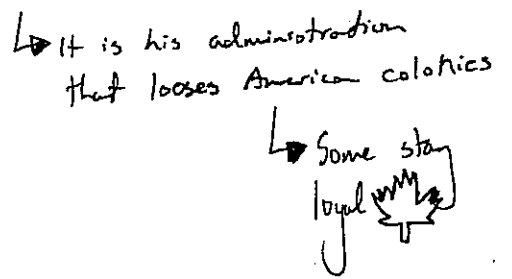 It is his adminsotration
that looses American colonies
Some stay
loyal